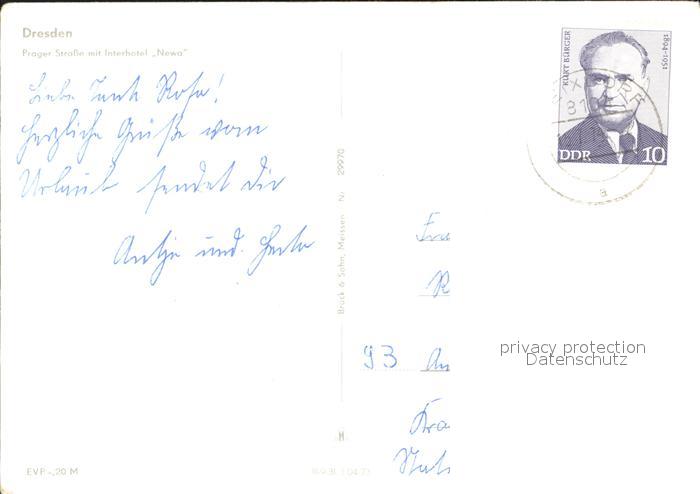 Dresden
Prager Straße mit Interhotel „Newa"
Liebe Tante Rosa!
Herzliche Grüße vom
Urlaub sendet dir
Antje und Herta
Brück & Sohn, Meissen Nr 29970
KURT BÜRGER
1894-1951
DDR 10
81
a
Frau
R
93 An
privacy protection
Datenschutz
EVP -,20 M